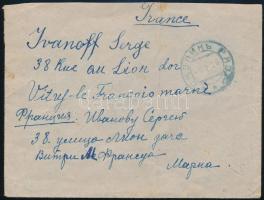 France
Ivanoff Serge
38 Rue au Lion dor
Vitry-le François marne
Франция: Иванову Сергею
38. улица Лион
Витри Франсуа
Марна.